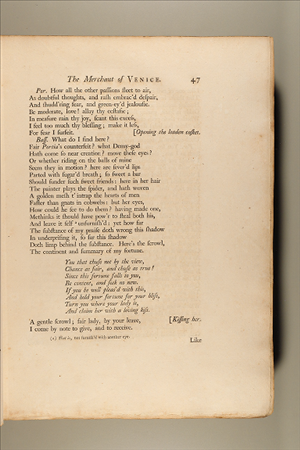 The Merchant of VENICE. 47
Por. How all the other passions fleet to air,
As doubtful thoughts, and rash embrac'd despair,
And shudd'ring fear, and green-ey'd jealousie.
Be moderate, love! allay thy ecstasie;
In measure rain thy joy, scant this excess,
I feel too much thy blessing; make it less,
For fear I surfeit. [Opening the leaden casket.
Bass. What do I find here?
Fair Portia's counterfeit? what Demy-god
Hath come so near creation? move these eyes?
Or whether riding on the balls of mine
Seem they in motion? here are sever'd lips
Parted with sugar'd breath; so sweet a bar
Should sunder such sweet friends: here in her hair
The painter plays the spider, and hath woven
A golden mesh t' intrap the hearts of men
Faster than gnats in cobwebs: but her eyes,
How could he see to do them? having made one,
Methinks it should have pow'r to steal both his,
And leave it self unfurnish'd: yet how far
The substance of my praise doth wrong this shadow
In underprising it, so far this shadow
Doth limp behind the substance. Here's the scrowl,
The continent and summary of my fortune.
You that chuse not by the view,
Chance as fair, and chuse as true!
Since this fortune falls to you,
Be content, and seek no new.
If you be well pleas'd with this,
And hold your fortune for your bliss,
Turn you where your lady is,
And claim her with a loving kiss.
A gentle scrowl; fair lady, by your leave, [Kissing her.
I come by note to give, and to receive.
That is, not furnish'd with another eye.
Like